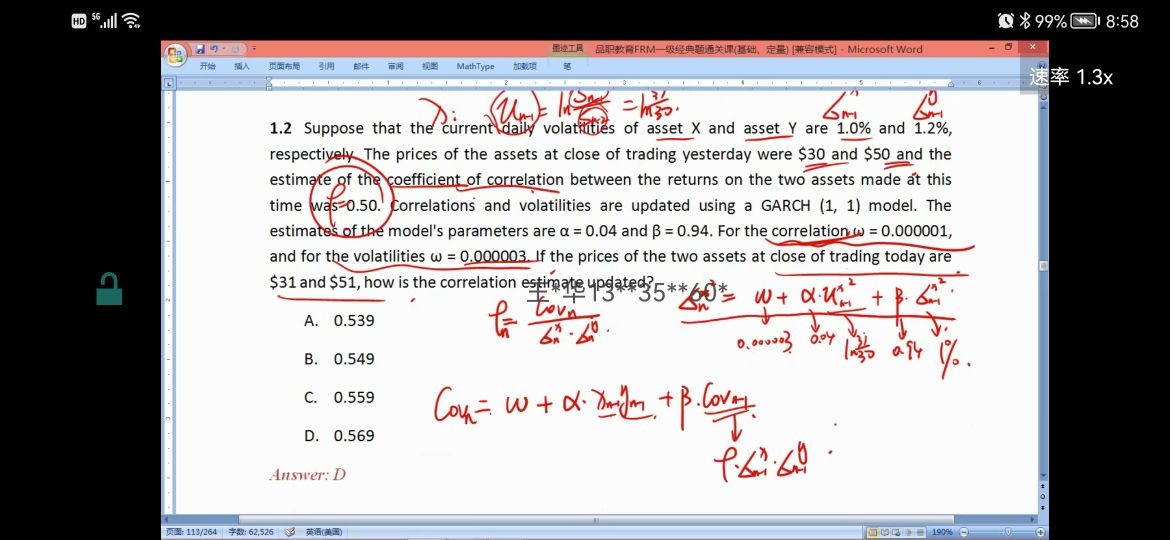 HD 5G 99% 8:58
墨迹工具 品职教育FRM一级经典题通关课(基础、定量) [兼容模式] - Microsoft Word
开始 插入 页面布局 引用 邮件 审阅 视图 MathType 加载项 笔
速率 1.3x
1.2 Suppose that the current daily volatilities of asset X and asset Y are 1.0% and 1.2%,
respectively. The prices of the assets at close of trading yesterday were $30 and $50 and the
estimate of the coefficient of correlation between the returns on the two assets made at this
time was 0.50. Correlations and volatilities are updated using a GARCH (1, 1) model. The
estimates of the model's parameters are α = 0.04 and β = 0.94. For the correlation ω = 0.000001,
and for the volatilities ω = 0.000003. If the prices of the two assets at close of trading today are
$31 and $51, how is the correlation estimate updated?
王*华13**35**60*
0.000003 0.04 ln31/30 0.94 1%.
A. 0.539
B. 0.549
C. 0.559
Covn = ω + α · xn-1 yn-1 + β · Covn-1
D. 0.569
Answer: D
页面: 113/264 字数: 62,526 英语(美国) 190%